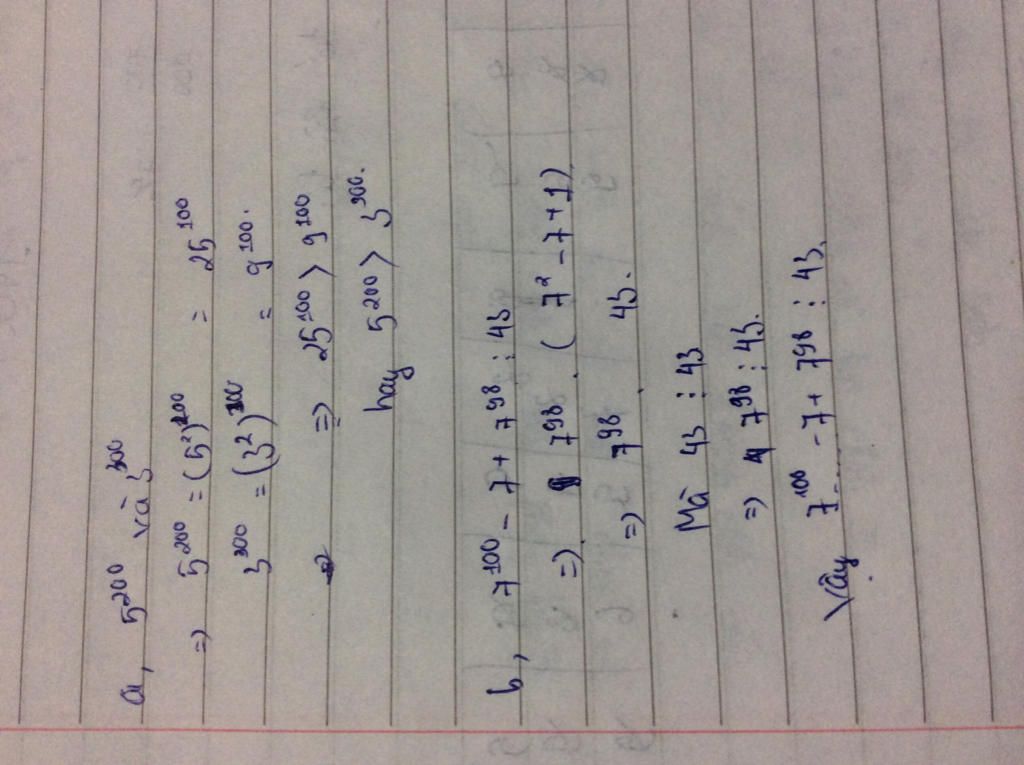 a, 5²⁰⁰ và 3³⁰⁰
=> 5²⁰⁰ = (5²)²⁰⁰ = 25¹⁰⁰
3³⁰⁰ = (3²)¹⁰⁰ = 9¹⁰⁰.
=> 25¹⁰⁰ > 9¹⁰⁰
hay 5²⁰⁰ > 3³⁰⁰.
b, 7¹⁰⁰ - 7 + 7⁹⁸ ⋮ 43
=> 7⁹⁸ . ( 7² - 7 + 1)
=> 7⁹⁸ . 43.
Mà 43 ⋮ 43
=> 7⁹⁸ ⋮ 43.
Vậy 7¹⁰⁰ - 7 + 7⁹⁸ ⋮ 43.